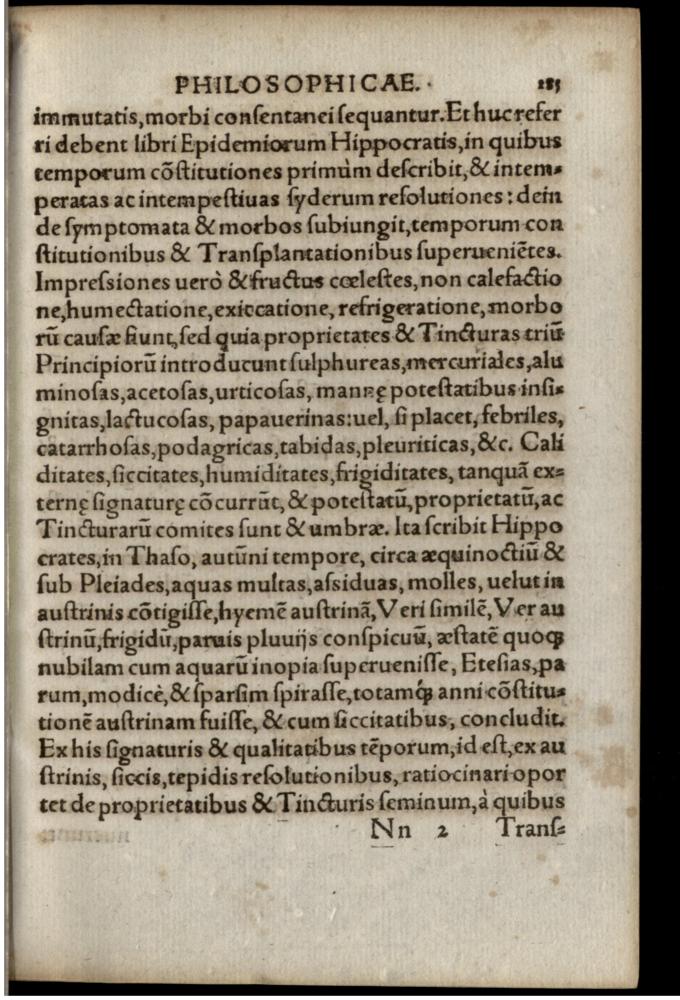 PHILOSOPHICAE. 285
immutatis, morbi consentanei sequantur. Et huc refer
ri debent libri Epidemiorum Hippocratis, in quibus
temporum cõstitutiones primùm describit, & intem-
peratas ac intempestiuas syderum resolutiones: dein
de symptomata & morbos subiungit, temporum con
stitutionibus & Transplantationibus superueniẽtes.
Impressiones uerò & fructus cœlestes, non calefactio
ne, humectatione, exiccatione, refrigeratione, morbo
rũ causæ fiunt, sed quia proprietates & Tincturas triũ
Principiorũ introducunt sulphureas, mercuriales, alu
minosas, acetosas, urticosas, mannę potestatibus insi-
gnitas, lactucosas, papauerinas: uel, si placet, febriles,
catarrhosas, podagricas, tabidas, pleuriticas, &c. Cali
ditates, siccitates, humiditates, frigiditates, tanquã ex-
ternę signaturę cõcurrũt, & potestatũ, proprietatũ, ac
Tincturarũ comites sunt & umbræ. Ita scribit Hippo
crates, in Thaso, autũni tempore, circa æquinoctiũ &
sub Pleiades, aquas multas, assiduas, molles, uelut in
austrinis cõtigisse, hyemẽ austrinã, Veri similẽ, Ver au
strinũ, frigidũ, paruis pluuijs conspicuũ, æstatẽ quoqꝫ
nubilam cum aquarũ inopia superuenisse, Etesias, pa
rum, modicè, & sparsim spirasse, totamqꝫ anni cõstitu-
tionẽ austrinam fuisse, & cum siccitatibus, concludit.
Ex his signaturis & qualitatibus tẽporum, id est, ex au
strinis, siccis, tepidis resolutionibus, ratiocinari opor
tet de proprietatibus & Tincturis seminum, à quibus
Nn 2 Trans-